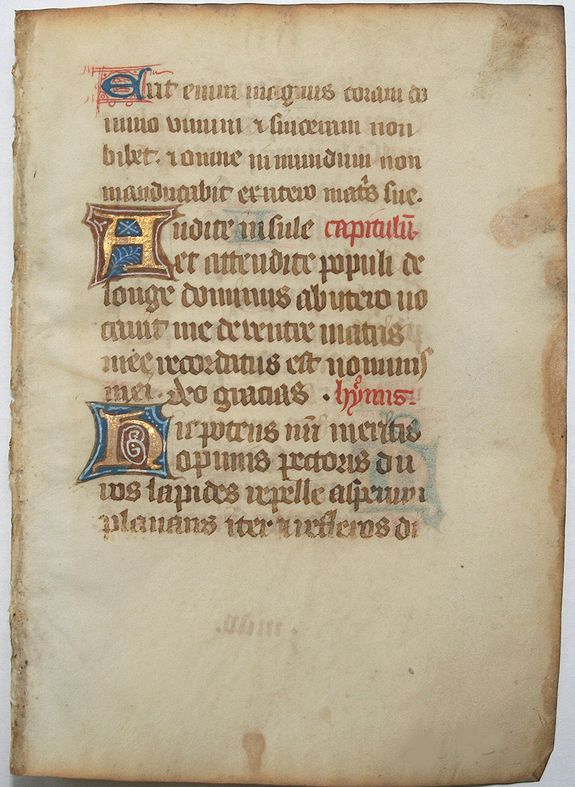 Erit enim magnus coram do
mino vinum & siceram non
bibet. & omne inmundum non
manducabit ex utero mat̄s sue.
Audite insule capitulū.
et attendite populi de
longe dominus ab utero uo
cauit me de ventre matris
mee recordatus est nominis
mei. deo gracias. hymns.
Nunc potens nr̄i meritis
opimis pectoris du
ros lapides repelle asperum
planans iter & reflexos di